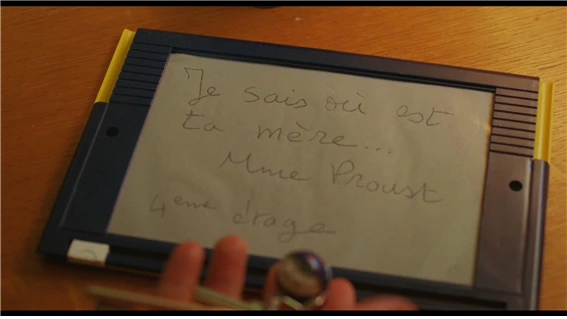 Je sais où est
ta mère...
Mme Proust
4eme étage